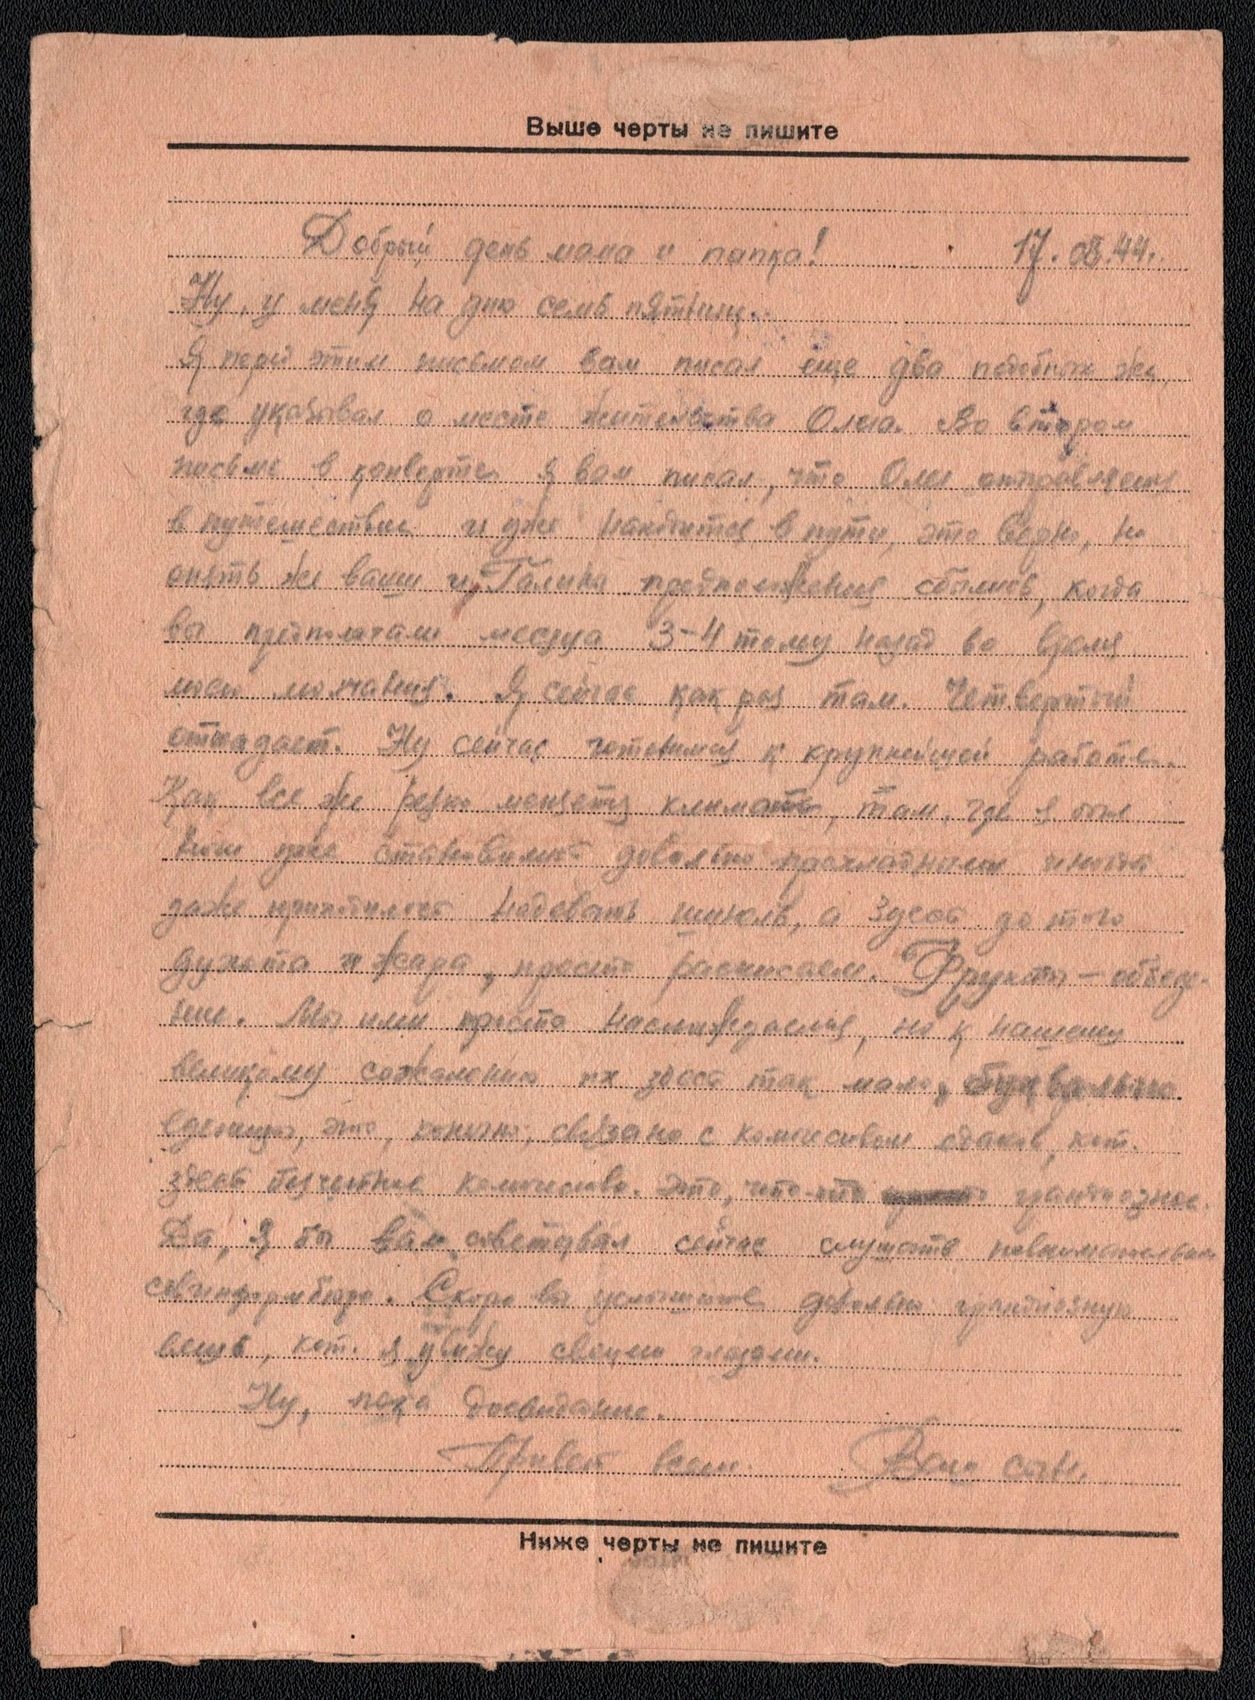 Выше черты не пишите
Добрый день мама и папка! 17.08.44.
Ну, у меня на дню семь пятниц.
Я перед этим письмом вам писал еще два подобных же,
где указывал о месте жительства Олы. Во втором
письме в конверте я вам писал, что Оля отправляется
в путешествие и уже находится в пути, это верно, но
опять же ваши и Галины предположения сбылись, когда
вы предполагали месяца 3-4 тому назад во время
моего молчания. Я сейчас как раз там. Четвертый
отпадает. Ну сейчас готовимся к крупнейшей работе.
Как все же резко меняется климат, там, где я был
ночи уже становились довольно прохладными иногда
даже приходилось надевать шинель, а здесь до того
духота и жара, просто раскисаем. Фрукты — объеде-
ние. Мы ими просто наслаждаемся, но к нашему
великому сожалению их здесь так мало, буквально
единицы, это, конечно, связано с количеством едоков, кот.
здесь безчетное количество. Это, что-то грандиозное.
Да, я бы вам советовал сейчас слушать повнимательнее
совинформбюро. Скоро вы услышите довольно грандиозную
вещь, кот. я увижу своими глазами.
Ну, пока досвидание.
Привет всем. Ваш сын.
Ниже черты не пишите